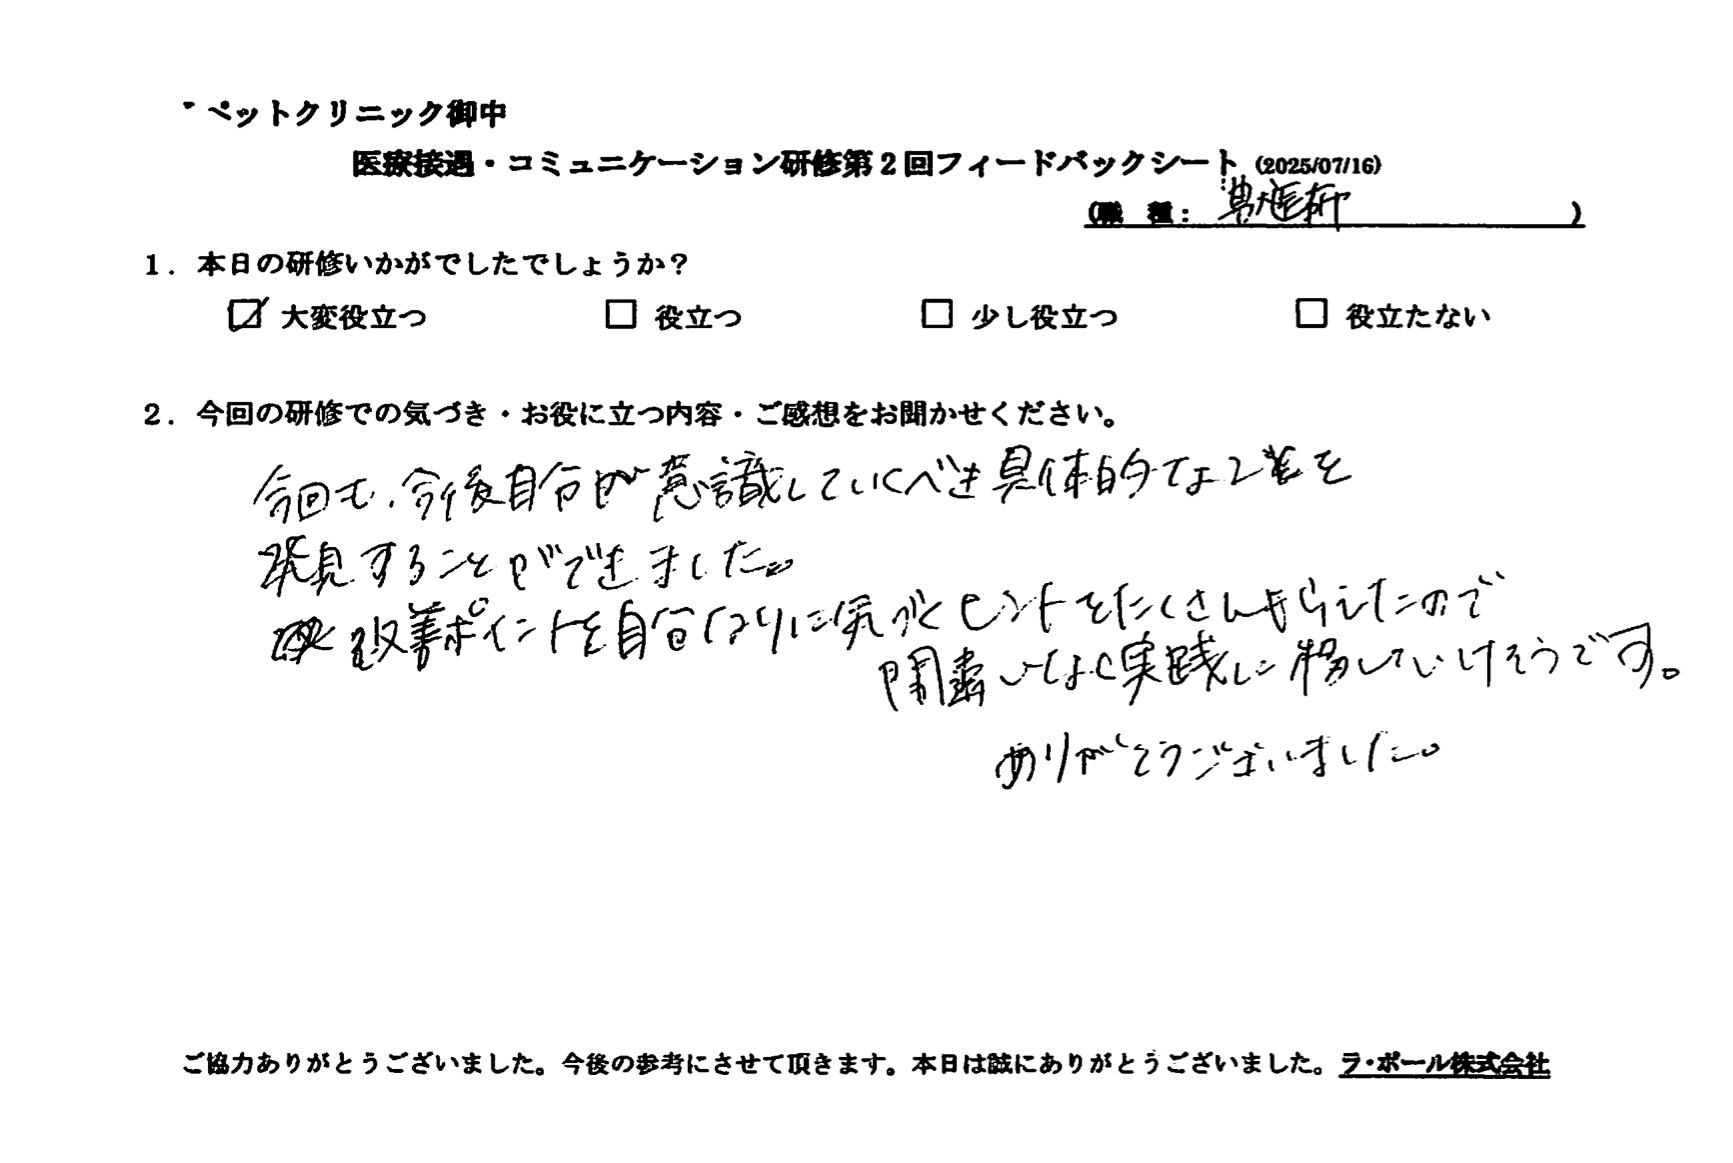 ペットクリニック御中
医療接遇・コミュニケーション研修第2回フィードバックシート (2025/07/16)
(職 種: 獣医師 )
1. 本日の研修いかがでしたでしょうか?
☑ 大変役立つ □ 役立つ □ 少し役立つ □ 役立たない
2. 今回の研修での気づき・お役に立つ内容・ご感想をお聞かせください。
今回も、今後自分が意識していくべき具体的なことを
発見することができました。
改善ポイントを自分なりに気づくヒントをたくさんもらえたので
間違いなく実践に移していけそうです。
ありがとうございました。
ご協力ありがとうございました。今後の参考にさせて頂きます。本日は誠にありがとうございました。ラ・ポール株式会社